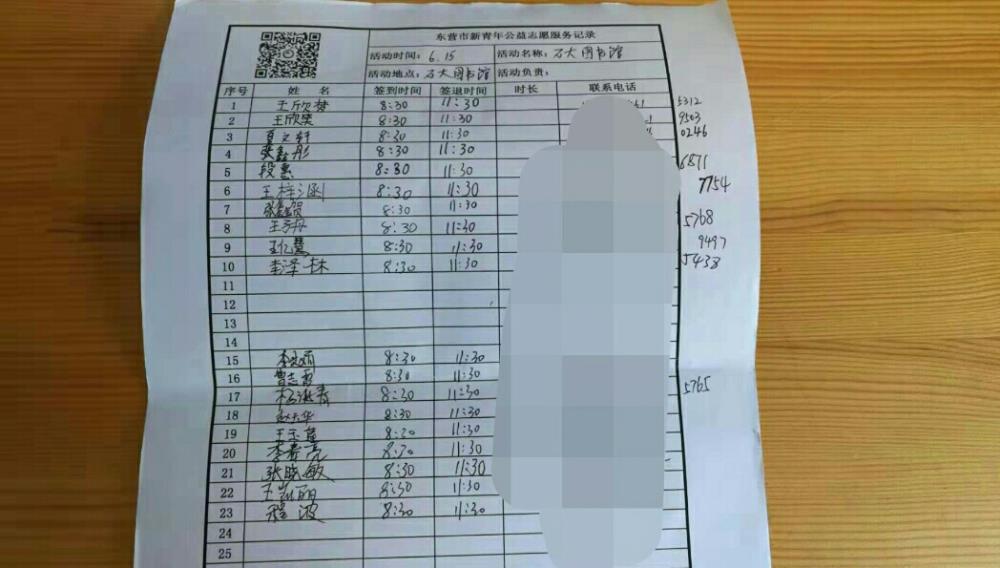 东营市新青年公益志愿服务记录
活动时间：6.15 活动名称：石大图书馆
活动地点：石大图书馆 活动负责：
序号 姓名 签到时间 签退时间 时长 联系电话
1 王欣梦 8:30 11:30 5312
2 王欣奕 8:30 11:30 9503
3 8:30 11:30 0246
4 张鑫彤 8:30 11:30
5 段惠 8:30 11:30 6871
6 王梓涵 8:30 11:30 7754
7 8:30 11:30
8 8:30 11:30 5768
9 8:30 11:30 9497
10 李泽林 8:30 11:30 5438
11
12
13
14
15 8:30 11:30
16 曹志霞 8:30 11:30
17 8:30 11:30 5765
18 8:30 11:30
19 王玉 8:30 11:30
20 李寿亮 8:30 11:30
21 张晓敏 8:30 11:30
22 王岩丽 8:30 11:30
23 程波 8:30 11:30
24
25